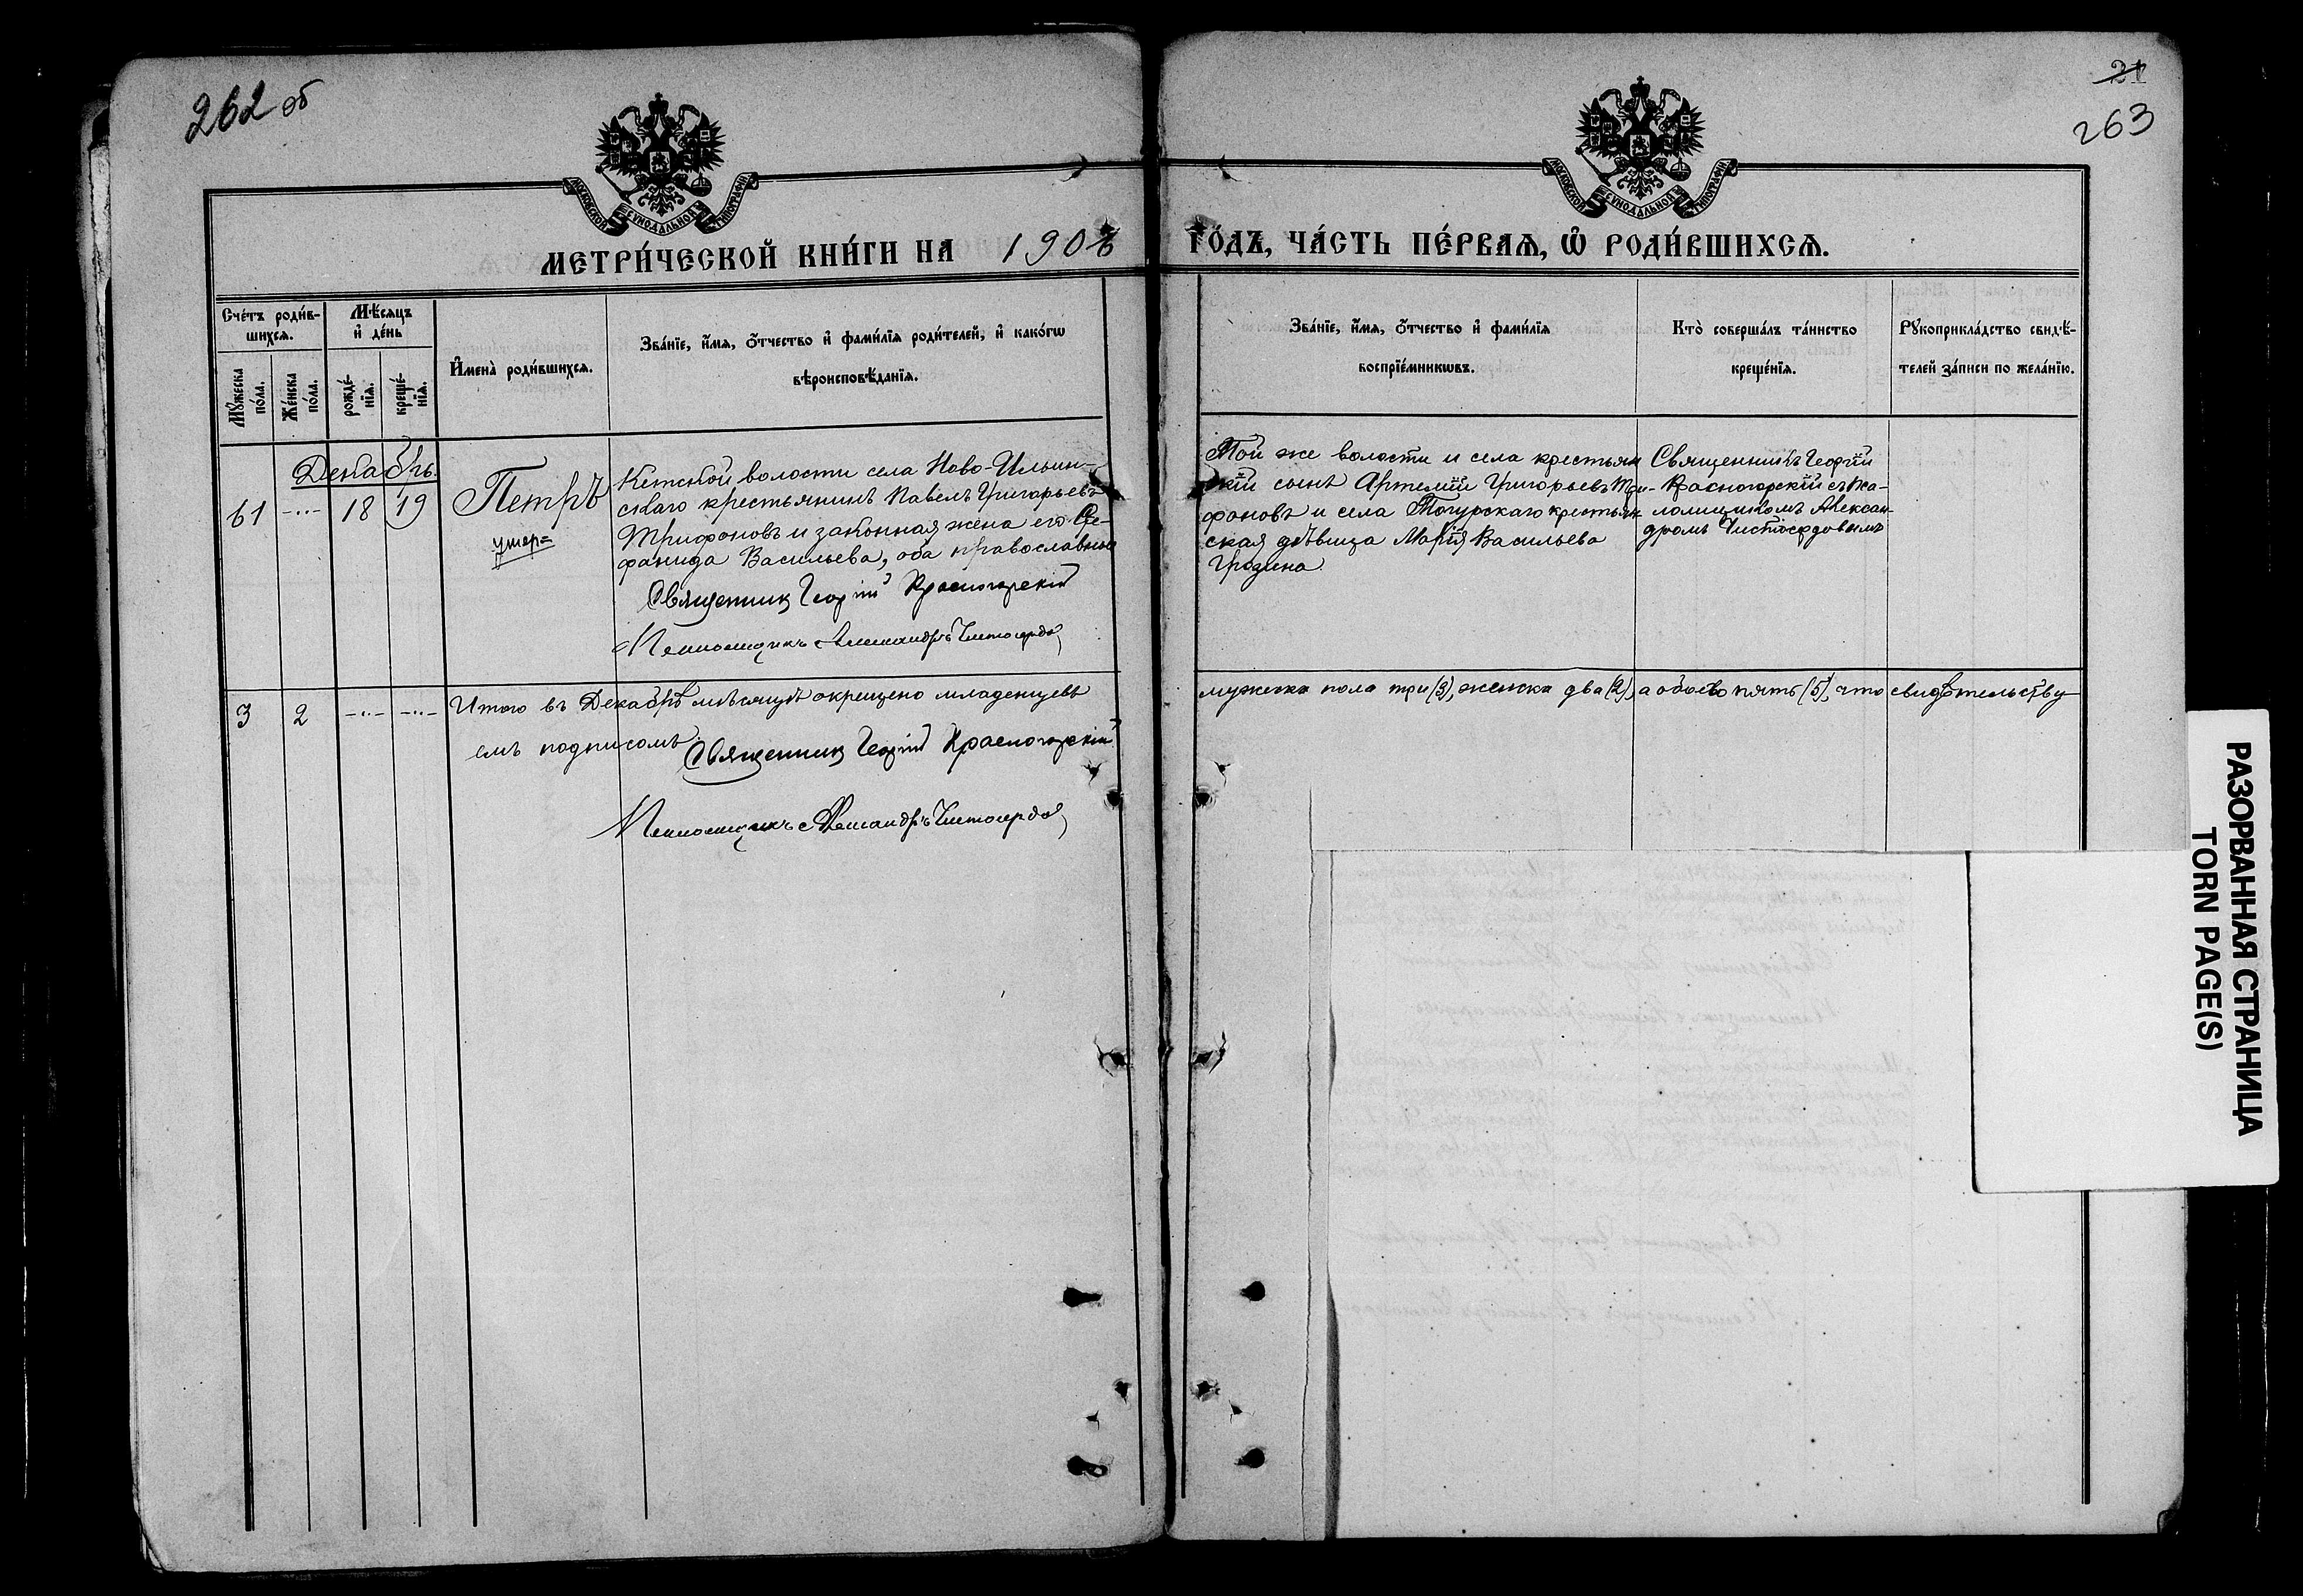 262 об
МОСКОВСКОЙ СѴНОДАЛЬНОЙ ТИПОГРАФІИ
МЕТРИ́ЧЕСКОЙ КНИ́ГИ НА 190
Сче́тъ роди́в-
шихсѧ.
Мꙋ́жеска
по́ла.
Же́нска
по́ла.
Мѣ́сѧцъ
и҆ де́нь
рожде́-
нїѧ.
креще́-
нїѧ.
И҆мена̀ роди́вшихсѧ.
Зва́нїе, и҆́мѧ, ѻ҆́тчество и҆ фами́лїѧ роди́телей, и҆ како́гѡ
вѣроисповѣ́данїѧ.
Декабрь.
61 -"- 18 19
Петръ
умер=
Кетской волости села Ново-Ильин-
скаго крестьянинъ Павелъ Григорьевъ
Трифоновъ и законная жена его Сте-
фанида Васильева, оба православные
Священникъ Георгій Красногорскій
Псаломщикъ Александръ Чистосердов
3 2 -"- -"- Итого въ Декабрѣ мѣсяцѣ окрещено младенцевъ
емъ подписомъ.
Священникъ Георгій Красногорскій
Псаломщикъ Александръ Чистосердов
21
263
МОСКОВСКОЙ СѴНОДАЛЬНОЙ ТИПОГРАФІИ
ГО́ДЪ, ЧА́СТЬ ПЕ́РВАѦ, Ѽ РОДИ́ВШИХСѦ.
Зва́нїе, и҆́мѧ, ѻ҆́тчество и҆ фами́лїѧ
воспрїе́мникѡвъ.
Кто̀ соверша́лъ та́инство
креще́нїѧ.
Рꙋкоприкла́дство свидѣ́-
телей за́писи по жела́нїю.
Той же волости и села крестьян
скій сынъ Артемій Григорьевъ Три-
фоновъ и села Тогурскаго крестьян
ская дѣвица Марія Васильева
Гродина.
Священникъ Георгій
Красногорскій съ пса-
ломщикомъ Алексан-
дромъ Чистосердовымъ
мужеска пола три (3), женска два (2), а обоего пять (5), что свидѣтельству
РАЗОРВАННАЯ СТРАНИЦА
TORN PAGE(S)